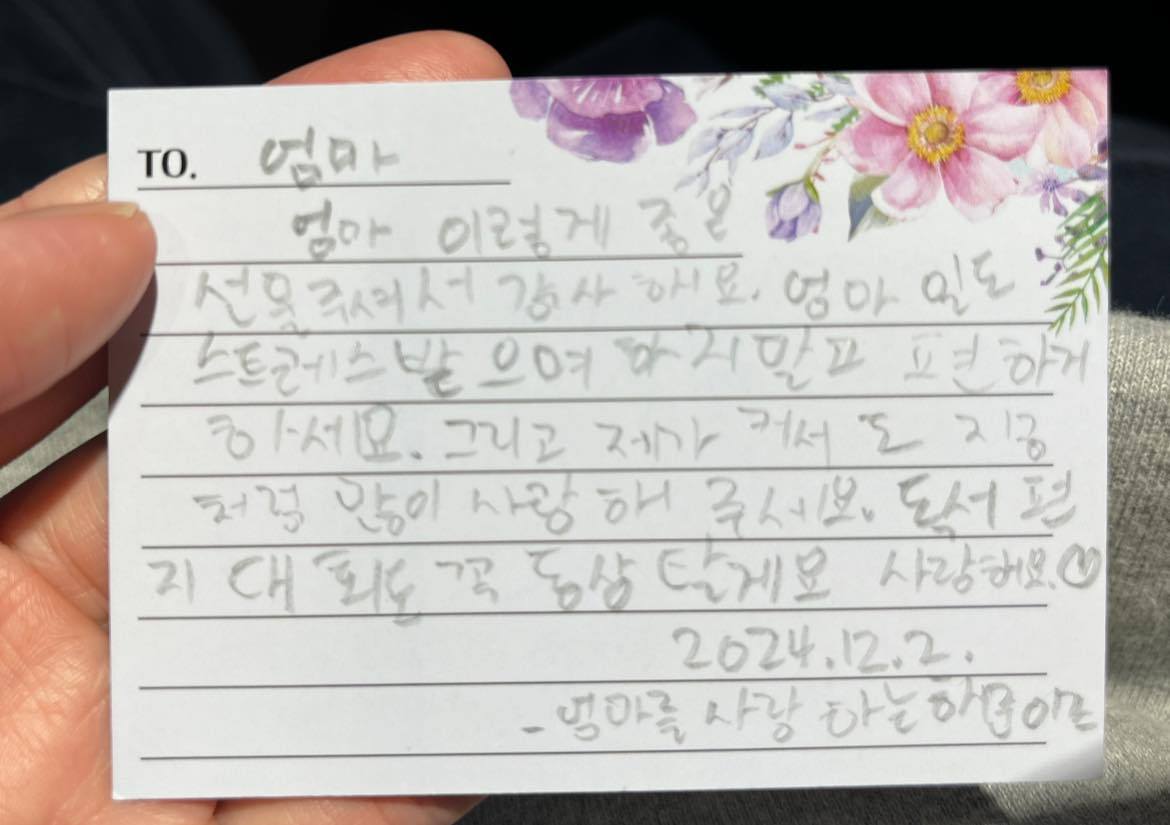 TO. 엄마
엄마 이렇게 좋은
선물주셔서 감사 해요. 엄마 일도
스트레스받 으며 하지말고 편하게
하세요. 그리고 제가 커서 도 지금
처럼 많이 사랑 해 주세요. 독서 편
지 대 회도 꼭 동상 탈게요 사랑해요.♡
2024.12.2.
-엄마를 사랑 하는